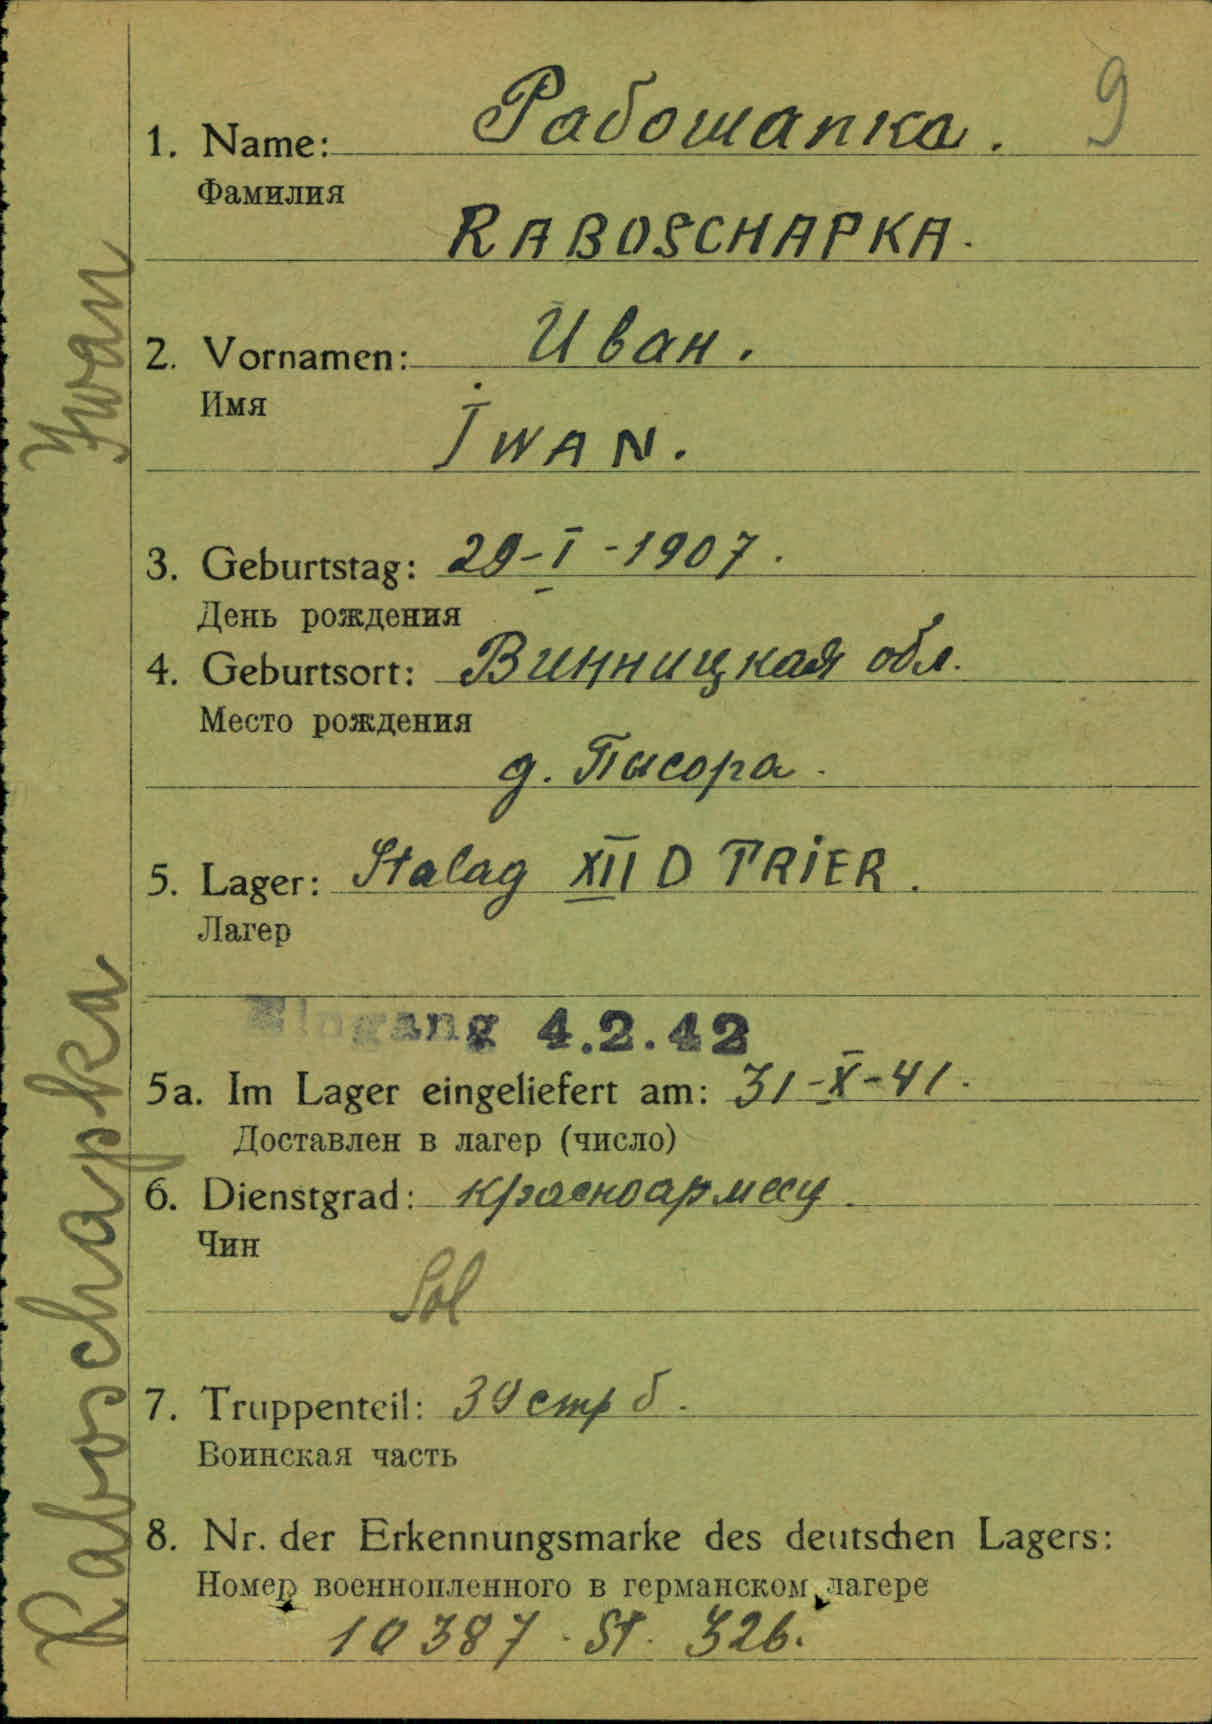 9
1. Name: Рабошапка.
Фамилия
RABOSCHAPKA.
2. Vornamen: Иван.
Имя
IWAN.
3. Geburtstag: 29-I-1907.
День рождения
4. Geburtsort: Винницкая обл.
Место рождения
д. Писора.
5. Lager: Stalag XII D TRiER.
Лагер
Eingang 4.2.42
5a. Im Lager eingeliefert am: 31-X-41.
Доставлен в лагер (число)
6. Dienstgrad: красноармеец.
Чин
Sol
7. Truppenteil: 39 стр б.
Воинская часть
8. Nr. der Erkennungsmarke des deutschen Lagers:
Номер военнопленного в германском лагере
10387. St. 326.
Raboschapka Iwan